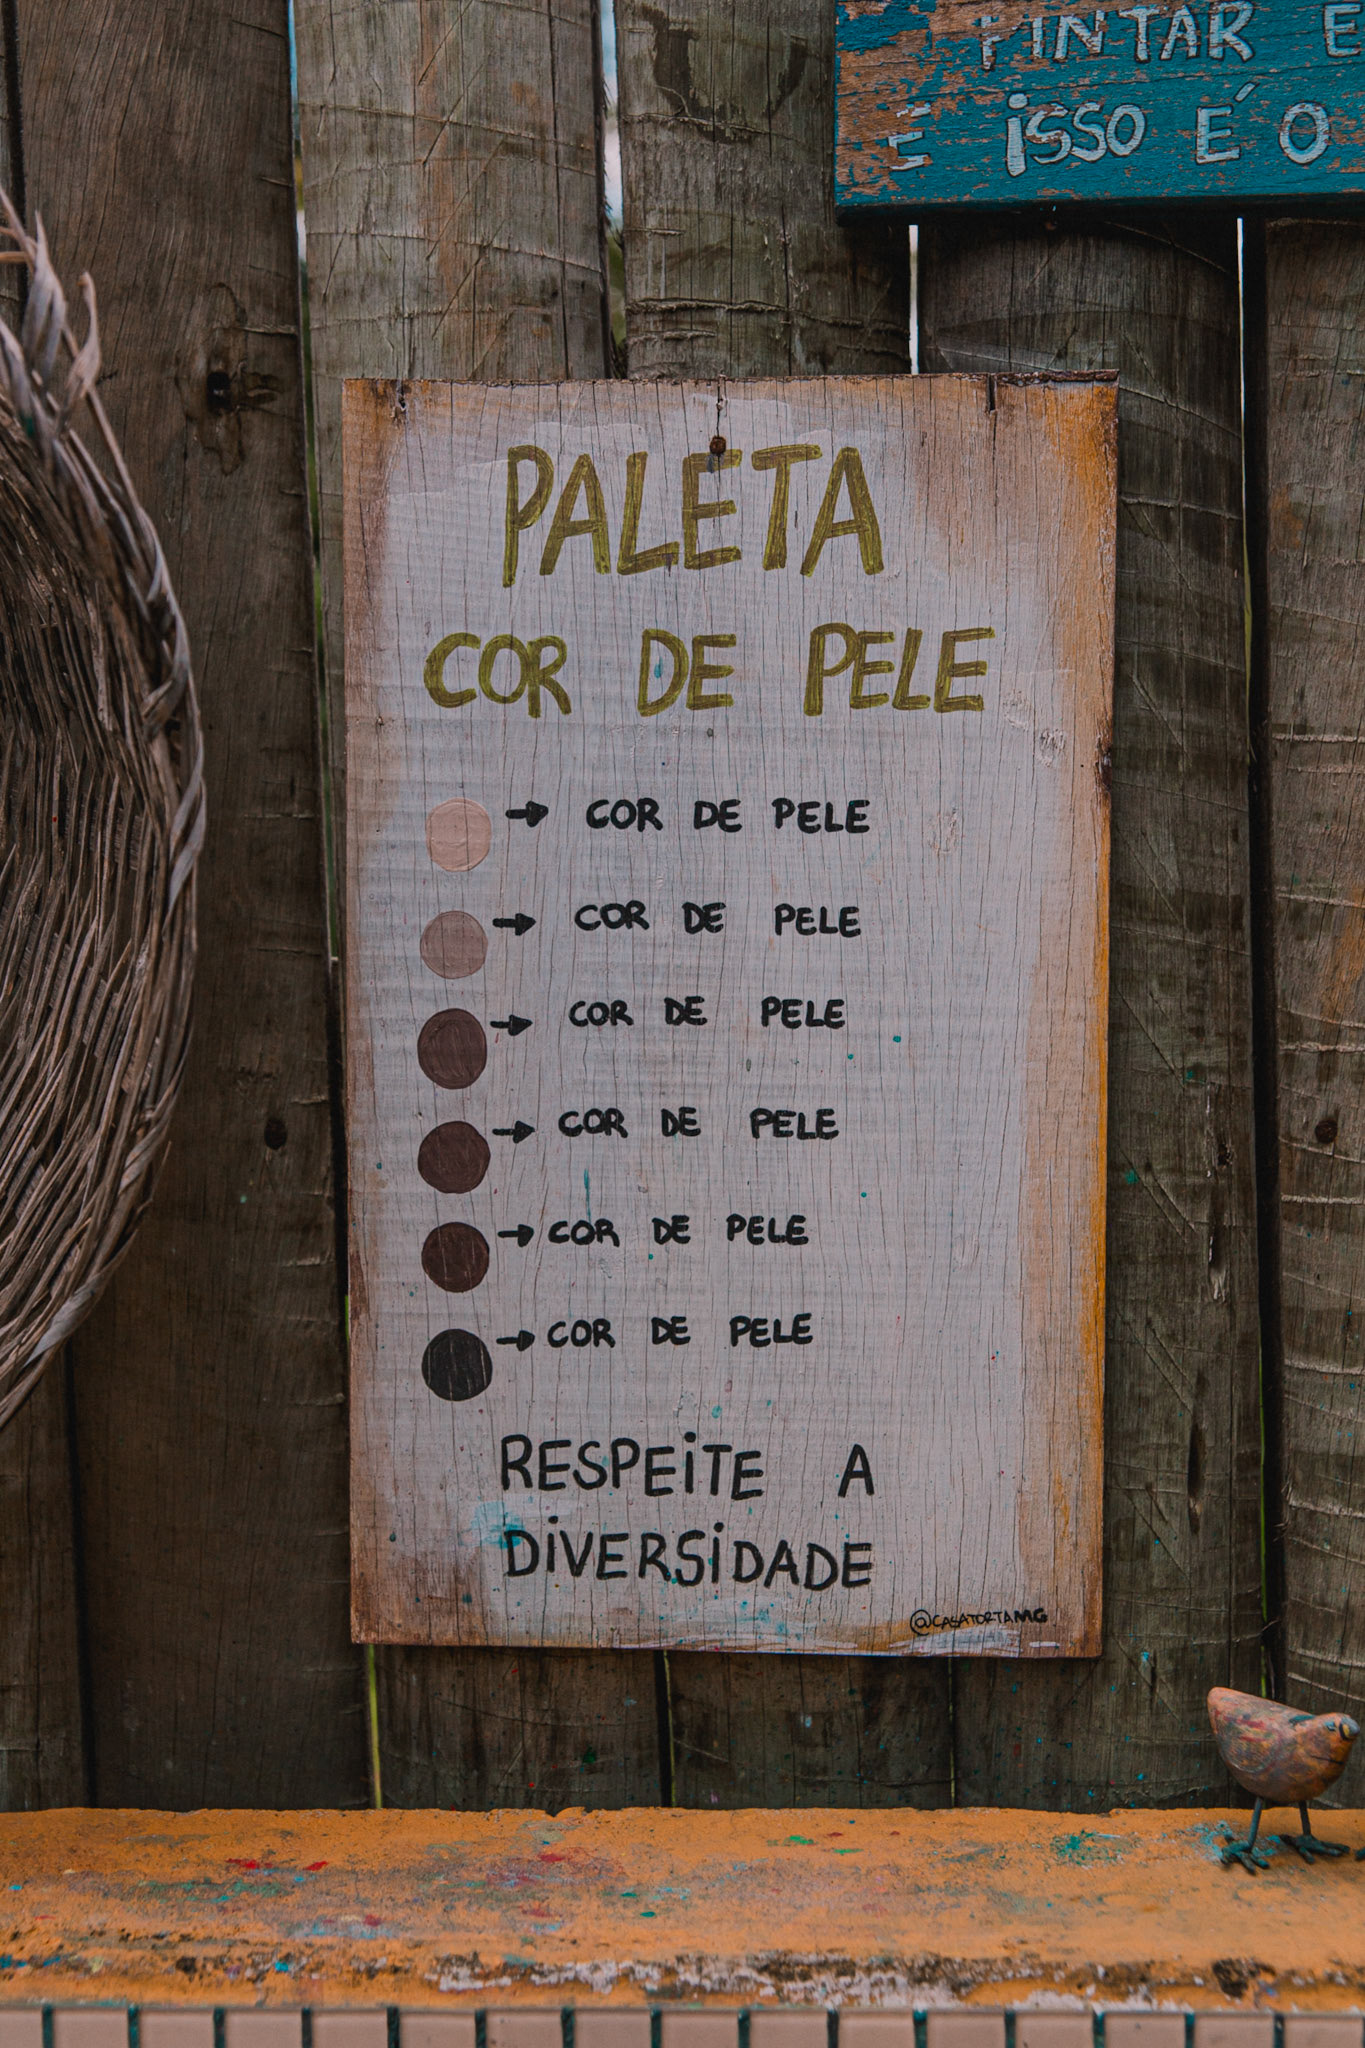 PINTAR E
ISSO É O
PALETA
COR DE PELE
→ COR DE PELE
→ COR DE PELE
→ COR DE PELE
→ COR DE PELE
→ COR DE PELE
→ COR DE PELE
RESPEITE A
DIVERSIDADE
@CASATORTAMG